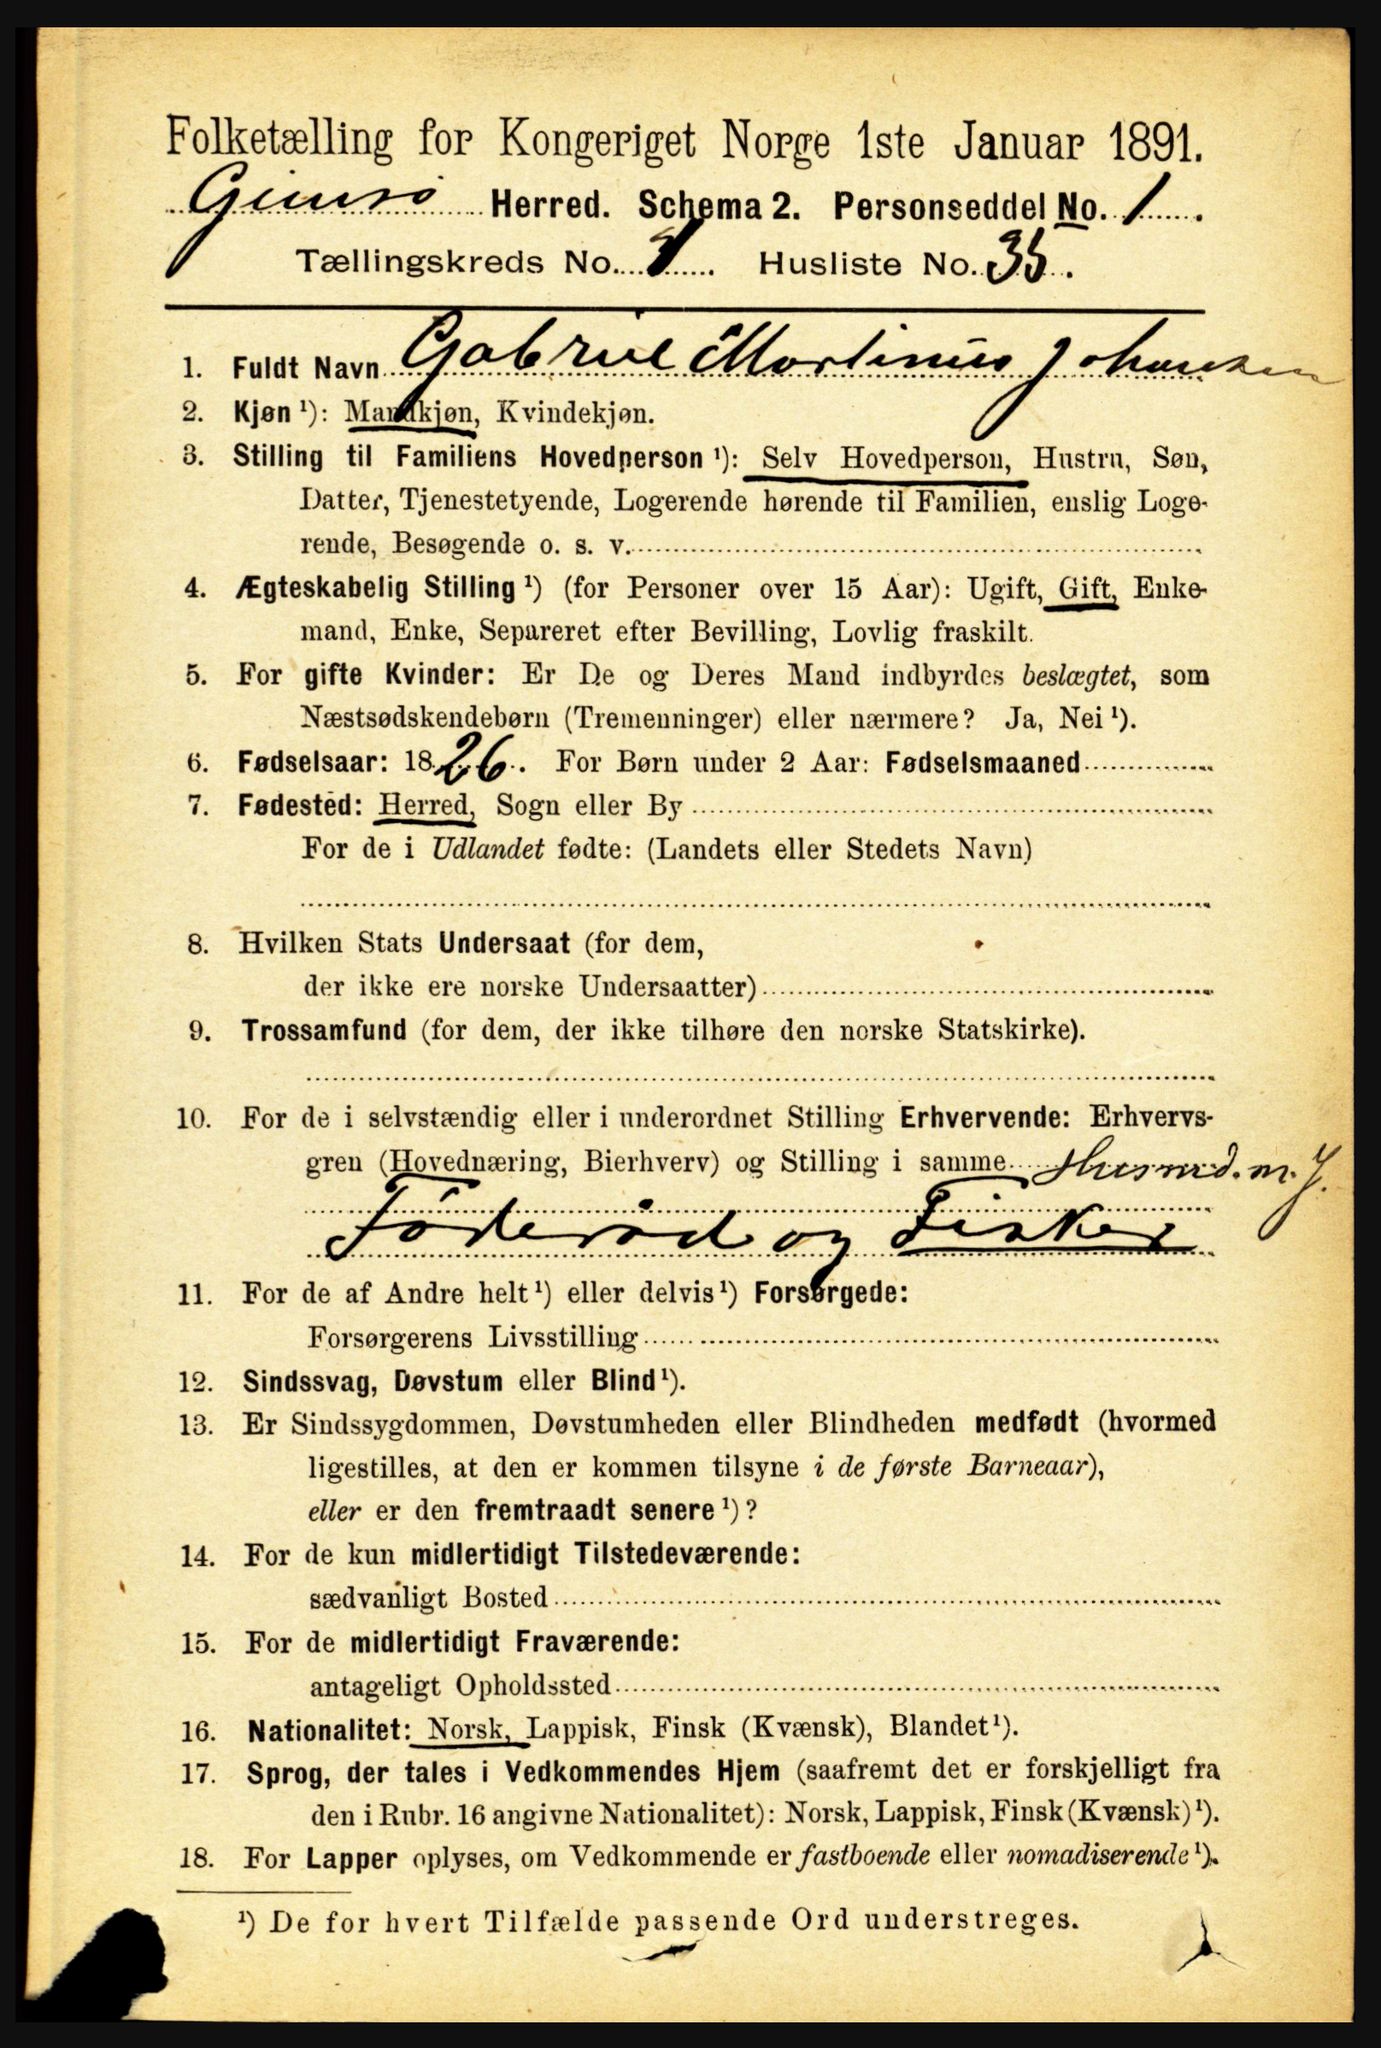 Folketælling for Kongeriget Norge 1ste Januar 1891.
Gimsø Herred. Schema 2. Personseddel No. 1.
Tællingskreds No. . Husliste No. 35.
1. Fuldt Navn Gabriel Martinus Johansen
2. Kjøn¹): Mandkjøn, Kvindekjøn.
3. Stilling til Familiens Hovedperson¹): Selv Hovedperson, Hustru, Søn,
Datter, Tjenestetyende, Logerende hørende til Familien, enslig Loge-
rende, Besøgende o. s. v.
4. Ægteskabelig Stilling¹) (for Personer over 15 Aar): Ugift, Gift, Enke-
mand, Enke, Separeret efter Bevilling, Lovlig fraskilt.
5. For gifte Kvinder: Er De og Deres Mand indbyrdes beslægtet, som
Næstsødskendebørn (Tremenninger) eller nærmere? Ja, Nei¹).
6. Fødselsaar: 1826. For Børn under 2 Aar: Fødselsmaaned
7. Fødested: Herred, Sogn eller By
For de i Udlandet fødte: (Landets eller Stedets Navn)
8. Hvilken Stats Undersaat (for dem,
der ikke ere norske Undersaatter)
9. Trossamfund (for dem, der ikke tilhøre den norske Statskirke).
10. For de i selvstændig eller i underordnet Stilling Erhvervende: Erhvervs-
gren (Hovednæring, Bierhverv) og Stilling i samme Husmd. m. J.
Föderåd og Fisker
11. For de af Andre helt¹) eller delvis¹) Forsørgede:
Forsørgerens Livsstilling
12. Sindssvag, Døvstum eller Blind¹).
13. Er Sindssygdommen, Døvstumheden eller Blindheden medfødt (hvormed
ligestilles, at den er kommen tilsyne i de første Barneaar),
eller er den fremtraadt senere¹)?
14. For de kun midlertidigt Tilstedeværende:
sædvanligt Bosted
15. For de midlertidigt Fraværende:
antageligt Opholdssted
16. Nationalitet: Norsk, Lappisk, Finsk (Kvænsk), Blandet¹).
17. Sprog, der tales i Vedkommendes Hjem (saafremt det er forskjelligt fra
den i Rubr. 16 angivne Nationalitet): Norsk, Lappisk, Finsk (Kvænsk)¹).
18. For Lapper oplyses, om Vedkommende er fastboende eller nomadiserende¹).
¹) De for hvert Tilfælde passende Ord understreges.